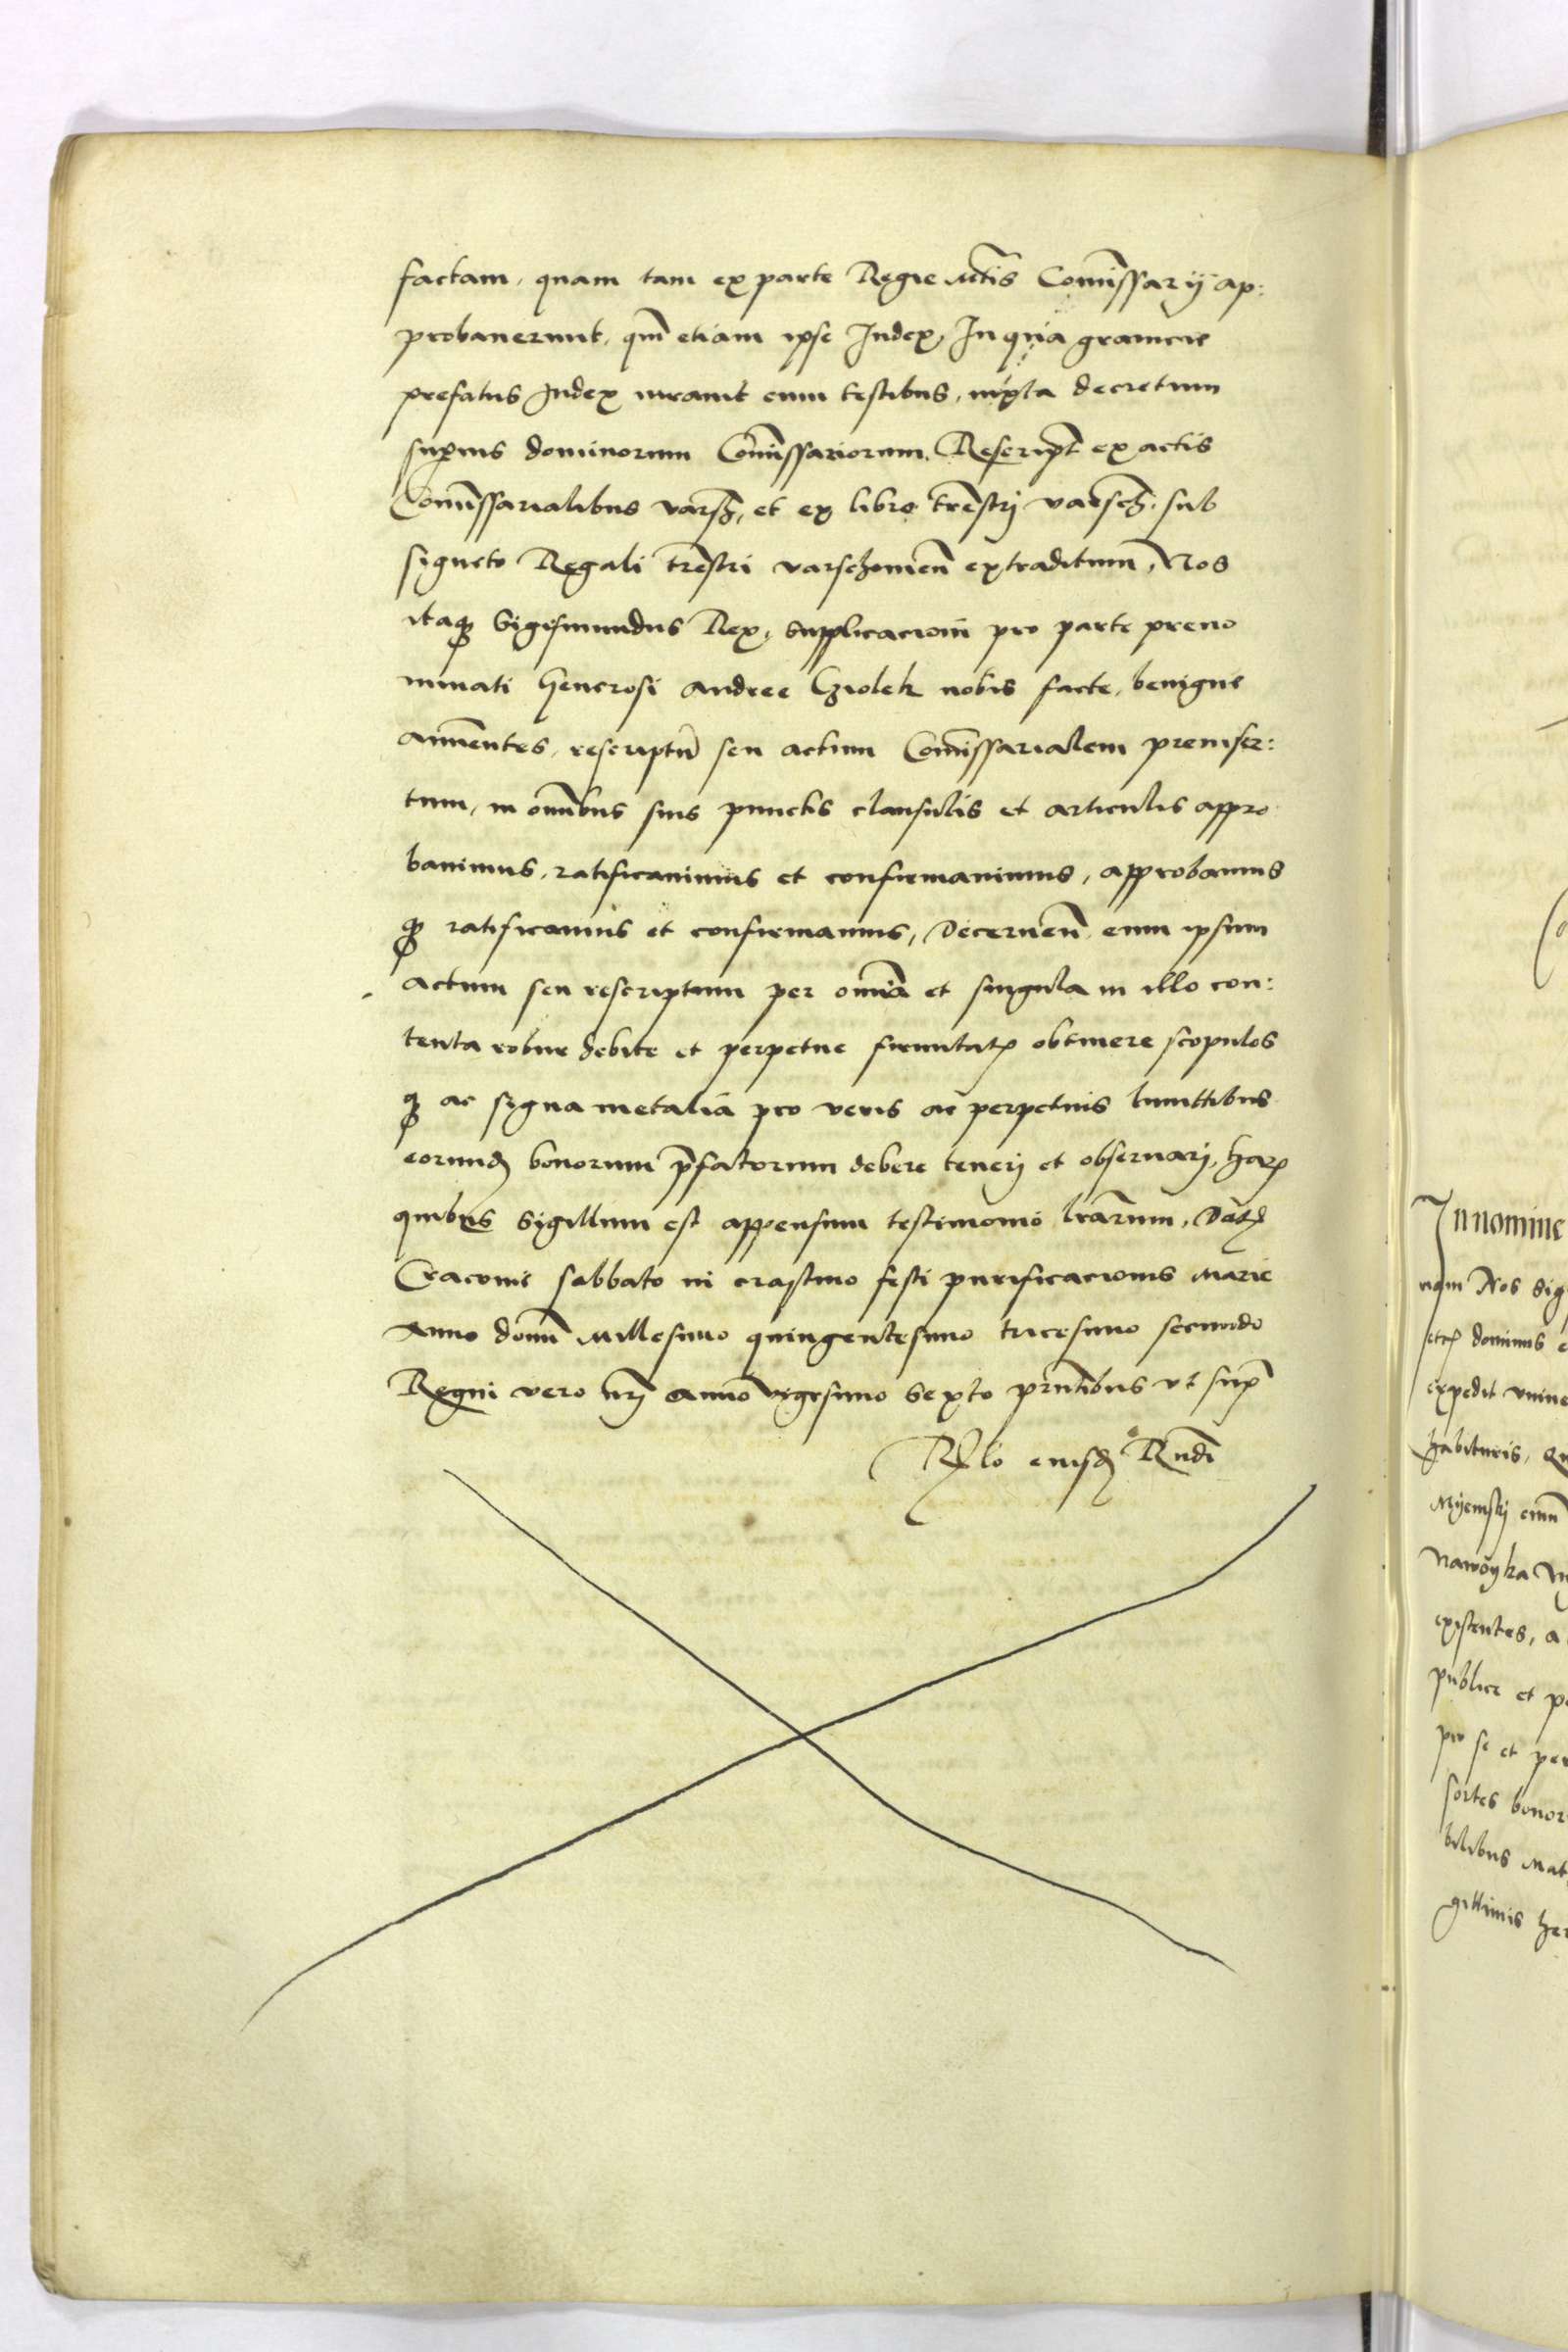 factam, quam tam ex parte Regie Mtis Comissarij ap:
probauerunt, qm etiam ipse Judex, In qua granicie
prefatus Judex iurauit cum testibus, iuxta decretum
superius dominorum Comissariorum, Rescript ex actis
Comissarialibus varsch, et ex libro trestrj varsch. sub
signeto Regali trestri varschouien extraditum, Nos
itaq Sigismundus Rex, supplicacioni pro parte preno
minati Generosi Andree Cziolek nobis facte, benigne
annuentes, rescriptu seu actum Comissarialem preinser:
tum, in omnibus suis punctis clausulis et articulis appro
bauimus, ratificauimus et confirmauimus, approbamus
q ratificamus et confirmamus, Decernen eum ipsum
actum seu rescriptum per omnia et singula in illo con:
tenta robur debite et perpetue firmitatis obtinere scopulos
q ac signa metalia pro veris ac perpetuis limittibus
eorund bonorum pfatorum debere tenerj et obseruarj, Har
quibus Sigillum est appensum testimonio lrarum, Dat
Cracouie sabbato in crastino festi purificacionis Marie
Anno domi Millesimo quingentesimo tricesimo secundo
Regni vero nrj anno vigesimo sexto pntibus vt sup
Rlo eiusd Rndi
In nomine
riam Nos Sig
etc dominus
expedit vniue
habituris, Q
Myemskj
Nawoyka
existentes, a
publice et p
pro se et per
sortes bonor
bilibus Mat
gittimis her